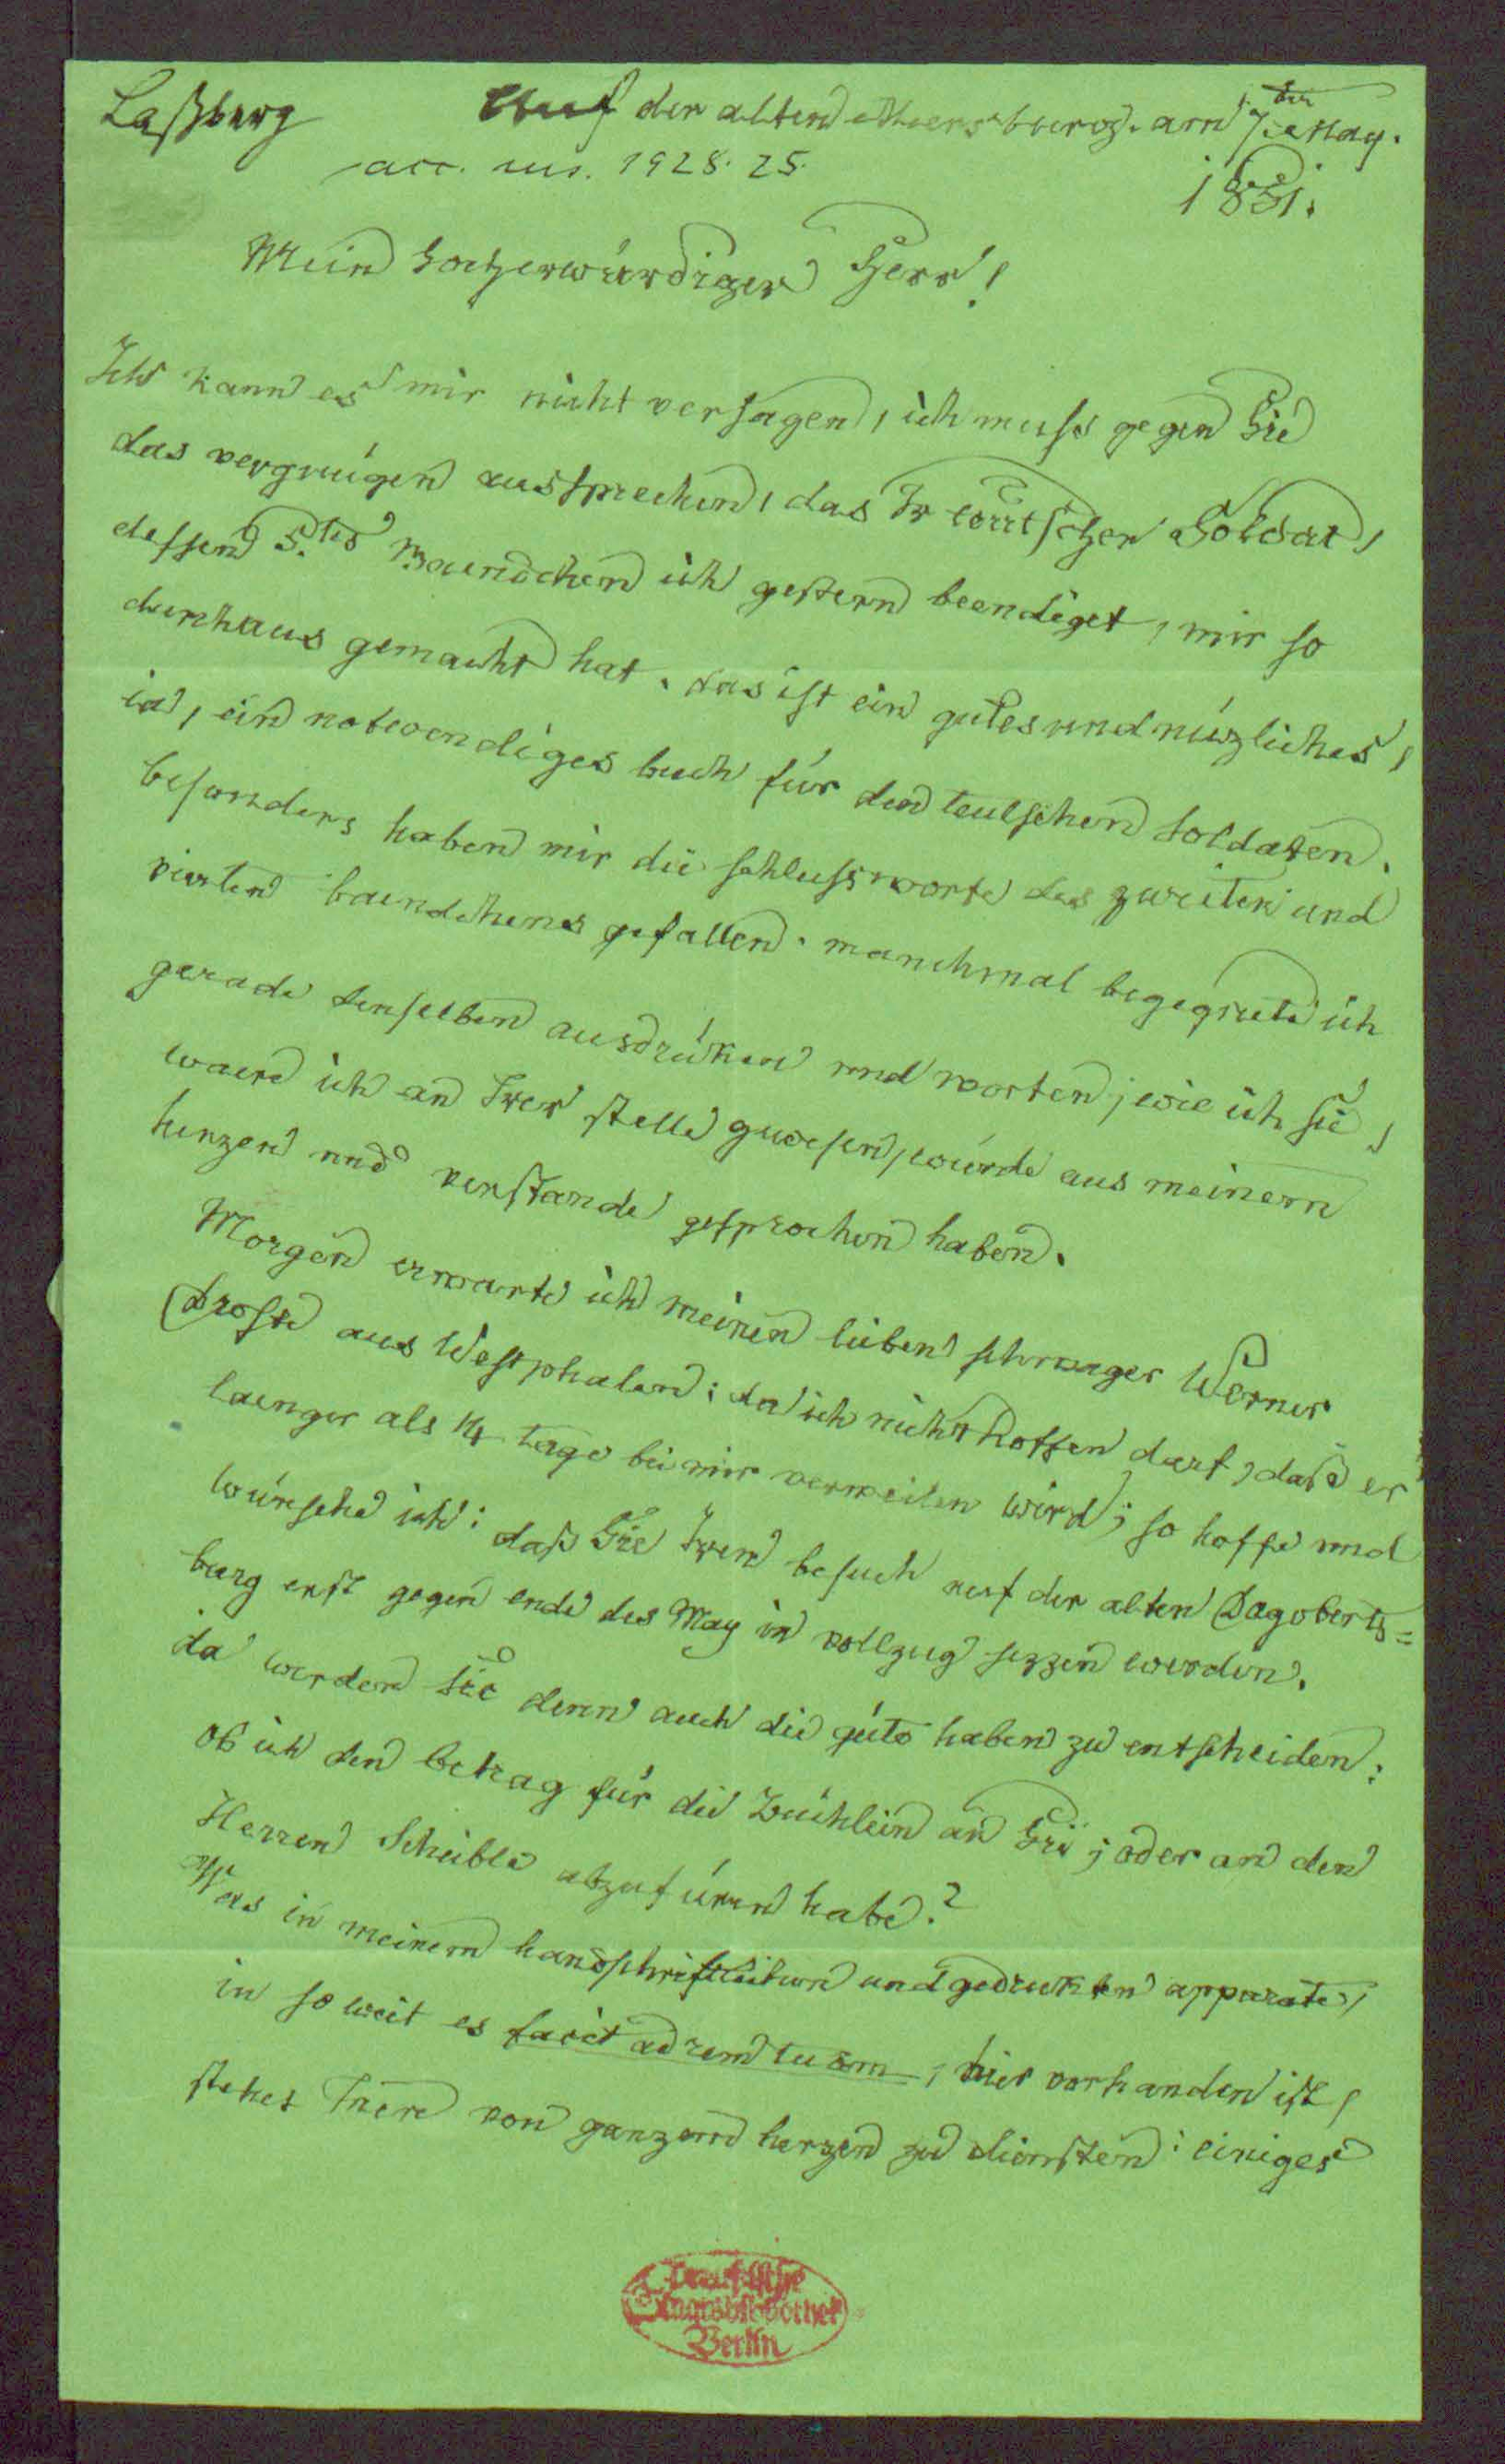 Laßberg
Auf der alten Meersburg. am 7ten May.
acc. ms. 1928. 25.
1851.
Mein hochwürdiger Herr!
Ich kann es mir nicht versagen, ich muss gegen Sie
das vergnügen aussprechen, das Ir teutscher Soldat,
dessen 5.tes Baendchen ich gestern beendiget, mir so
durchaus gemacht hat. das ist ein gutes und nüzliches,
ia, ein notwendiges buch für den teutschen soldaten.
besonders haben mir die schlussworte des zweiten und
vierten baendchens gefallen. manchmal begegnete ich
gerade denselben ausdrüken und worten, wie ich sie,
waere ich an Irer stelle gewesen, würde aus meinem
herzen und verstande gesprochen haben.
Morgen erwarte ich meinen lieben schwager Werner
Droste aus Westphalen: da ich nicht hoffen darf, daß er
laenger als 14 tage bei mir verweilen wird; so hoffe und
wünsche ich: daß Sie Iren besuch auf der alten Dagoberts=
burg erst gegen ende des May in vollzug sezzen werden.
da werden sie denn auch die güte haben zu entscheiden:
ob ich den betrag für die Büchlein an Sie; oder an den
Herren Scheible abzufüren habe?
Was in meinem handschriftlichen und gedrukten apparate,
in so weit es facit ad rem tuam, hier vorhanden ist,
stehet Inen von ganzem herzen zu diensten: einiges
Preußische
Staatsbibliothek
Berlin